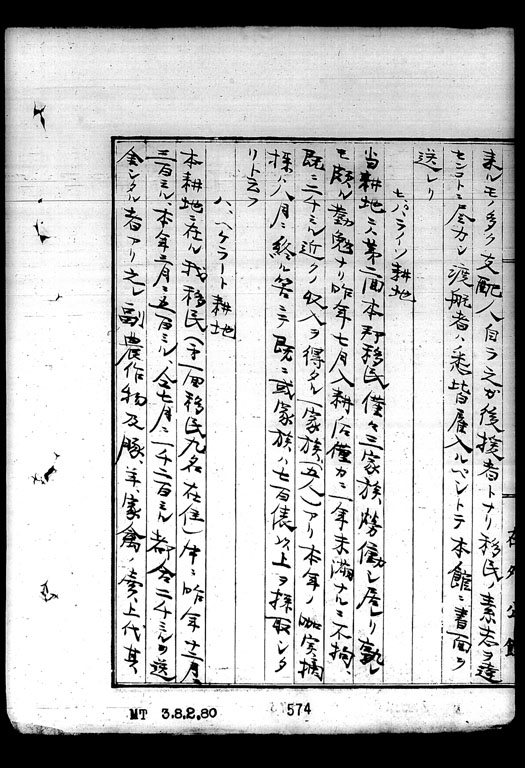 来ルモノ多ク支配人自ラ之カ後援者トナリ移民ノ素志ヲ達
センコトニ尽力シ渡航者ハ悉皆雇入ルベシトテ本館ニ書面ヲ
送レリ
七、パライソ耕地
当耕地ニハ第二回本邦移民僅々三家族、労働シ居レリ孰レ
モ頗ル勤勉ナリ昨年七月入耕后僅カニ一年未満ナルニ不拘、
既ニ二千ミル近クノ収入ヲ得タル一家族(五人)アリ本年ノ珈実摘
採ハ八月ニ終ル筈ニテ既ニ或家族ハ七百俵以上ヲ採取シタ
リト云フ
八、ヘケラート耕地
本耕地ニ在ル我移民(第一回移民九名在住)中ニ昨年十一月ニ
三百ミル、本年二月ニ五百ミル今七月ニ一千二百ミル都合二千ミルヲ送
金シタル者アリ之レ副農作物及豚、羊家禽ノ売上代其
在外公館
MT 3.8.2.80
574